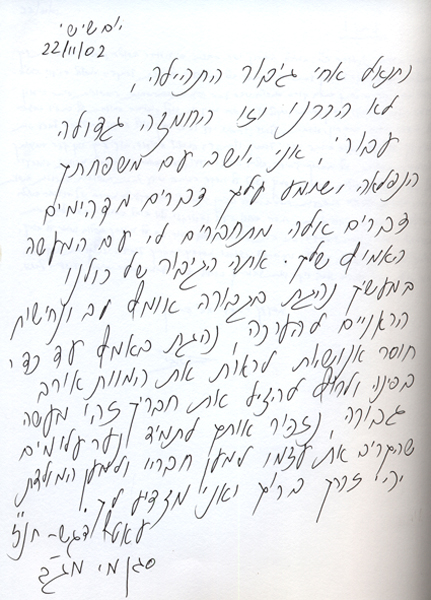 יום שישי
22/11/02
נתנאל אחי גיבור התהילה,
לא הכרנו וזו החמצה גדולה
עבורי, אני יושב עם משפחתך
הנפלאה ושומע עליך דברים מדהימים
דברים אלה מתחברים לי עם המעשה
האמיץ שלך. אתה הגיבור של כולנו
במעשיך נהגת בגבורה אומץ לב ונחישות
הראויים להערכה, נהגת באומץ עד כדי
חוסר אנושיות לראות את המוות אורב
בפניו ולחזור להציל את חבריך זהו מעשה
גבורה, נזכור אותך לתמיד ונער עלומים
שהקריב את עצמו למען חבריו ולמען המולדת
יהי זכרך ברוך ואני מצדיע לך.
דגש- חנ"ז
סגן מי מג"ב